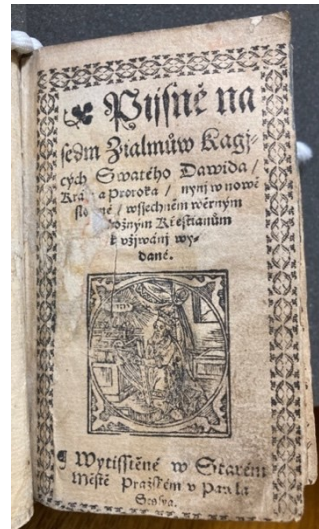 Pijsně na
sedm Žialmůw Kagj-
cých Swatého Dawida /
a Proroka / nynj w nowě
wssechněm wěrným
Křestianům
k vžjwánj wy-
dané.
¶ Wytisstěné w Starém
Městě Pražském v Pawla